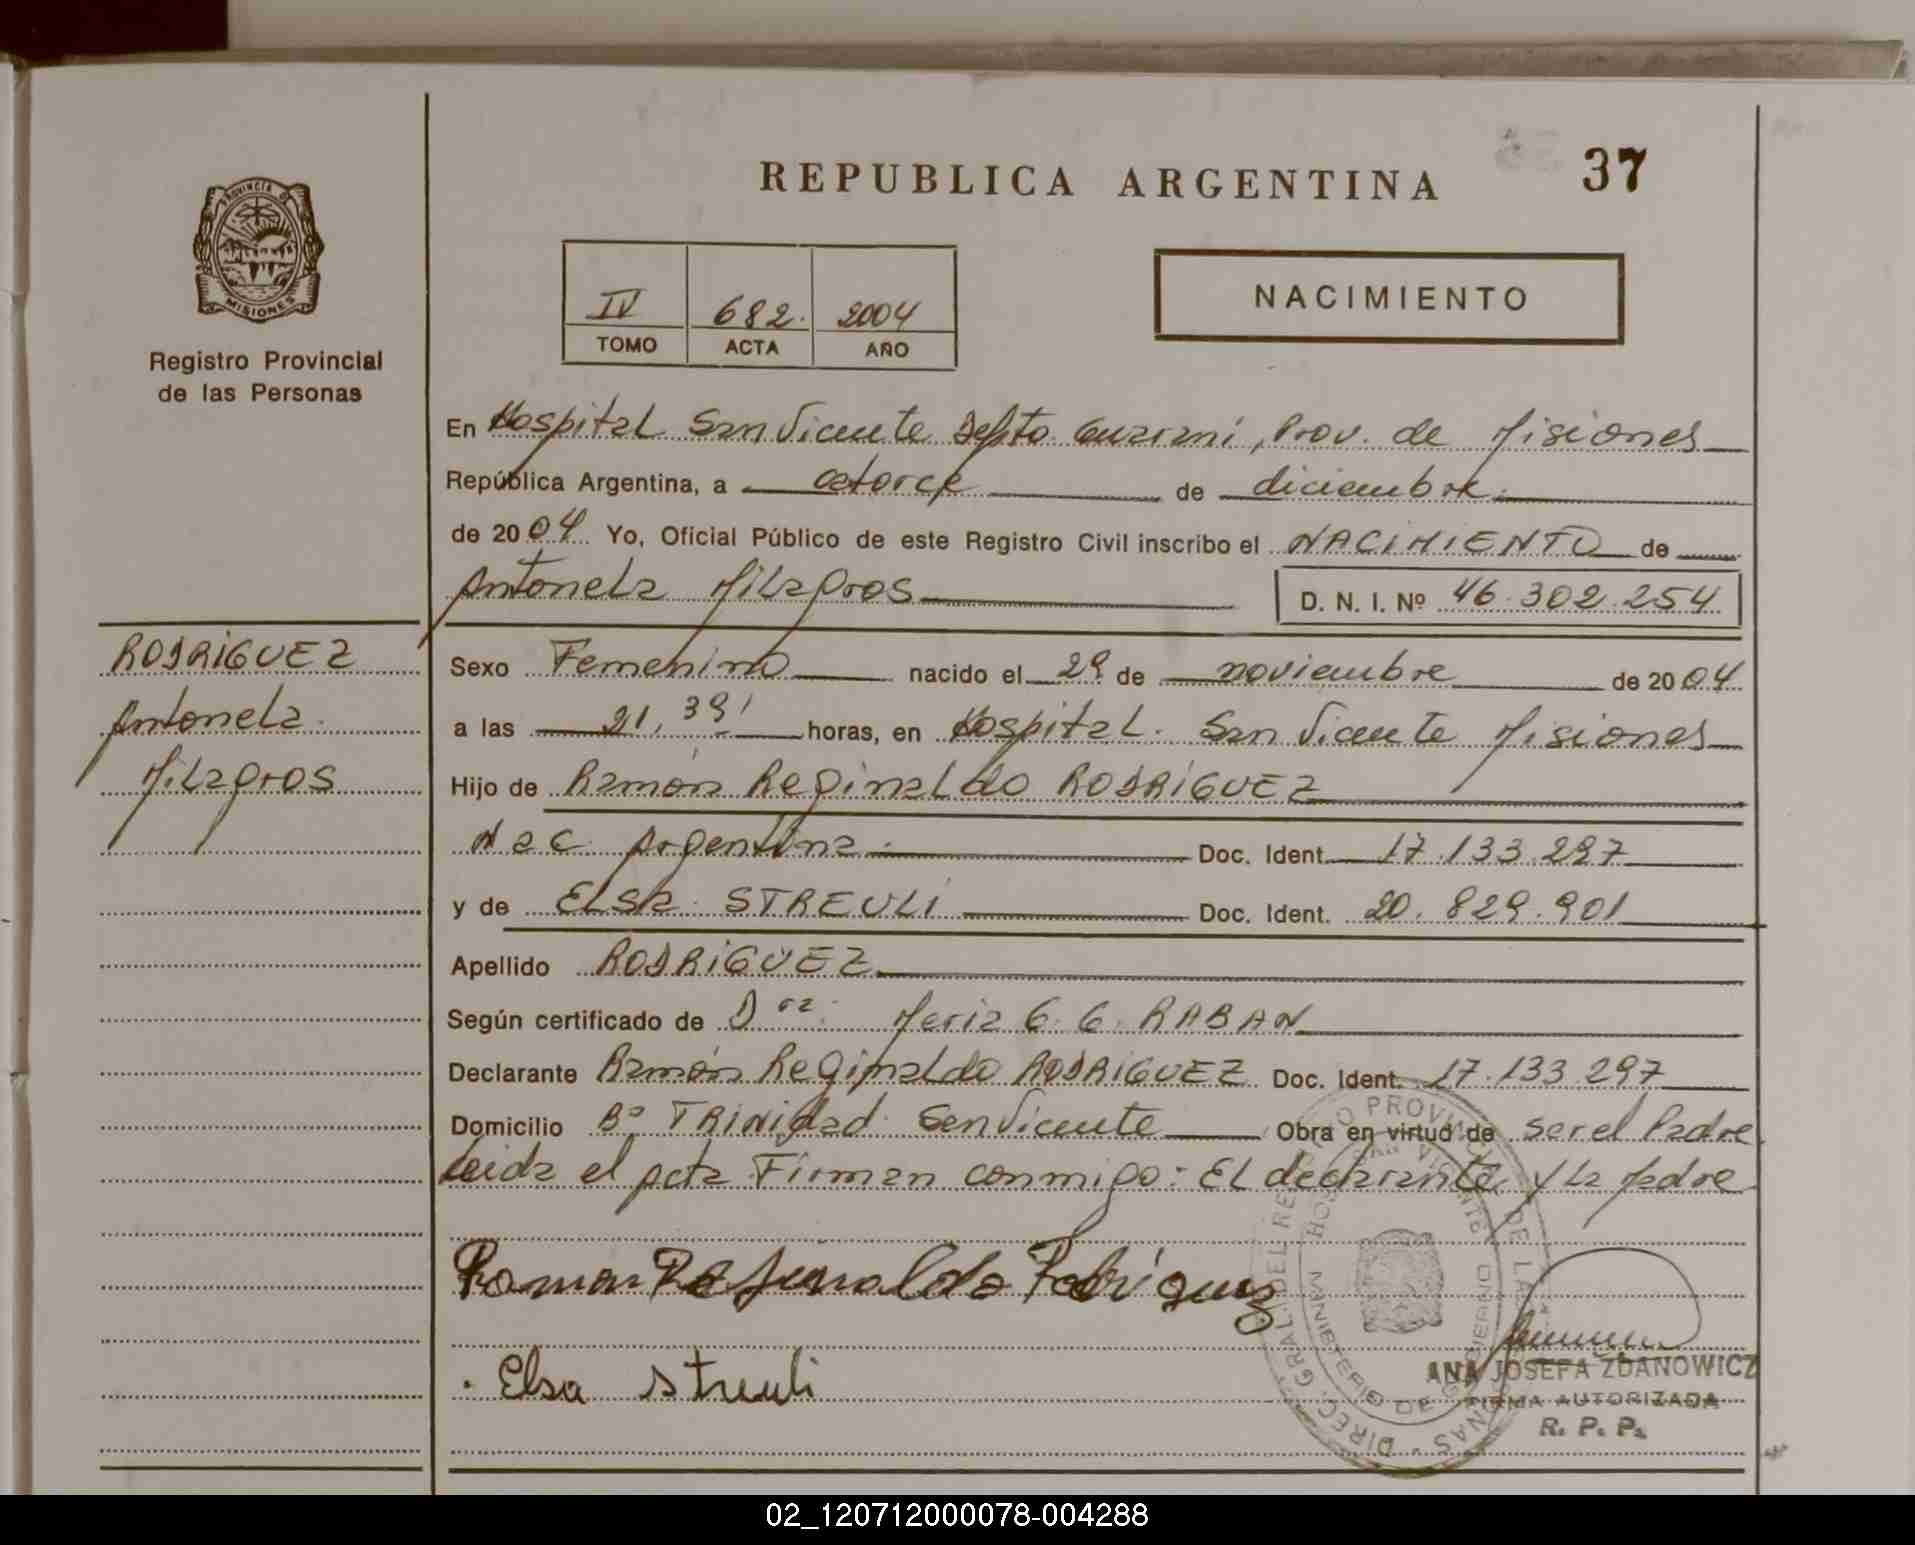 REPUBLICA ARGENTINA
37
PROVINCIA DE
MISIONES
Registro Provincial
de las Personas
IV 682. 2004
TOMO ACTA AÑO
NACIMIENTO
En Hospital San Vicente Depto. Guaraní, Prov. de Misiones
República Argentina, a catorce de diciembre.
de 2004 Yo, Oficial Público de este Registro Civil inscribo el NACIMIENTO de
Antonela Milagros
D. N. I. Nº 46.302.254
RODRIGUEZ
Antonela
Milagros
Sexo Femenino nacido el 29 de noviembre de 2004
a las 21,39' horas, en Hospital. San Vicente Misiones
Hijo de Ramón Reginaldo RODRIGUEZ
Nac. Argentina. Doc. Ident. 17.133.297
y de ELSA STREULI Doc. Ident. 20.829.901
Apellido RODRIGUEZ
Según certificado de Dra. María G. G. RABAN
Declarante Ramón Reginaldo RODRIGUEZ Doc. Ident. 17.133.297
Domicilio Bº TRINIDAD San Vicente Obra en virtud de ser el Padre
Leida el acta Firman conmigo: El declarante y la Madre
Ramon Reginaldo Rodriguez
Elsa Streuli
DIREC. GRAL. DEL REGISTRO PROVINCIAL DE LAS PERSONAS
MINISTERIO DE GOBIERNO
ANA JOSEFA ZDANOWICZ
FIRMA AUTORIZADA
R. P. P.
02_120712000078-004288